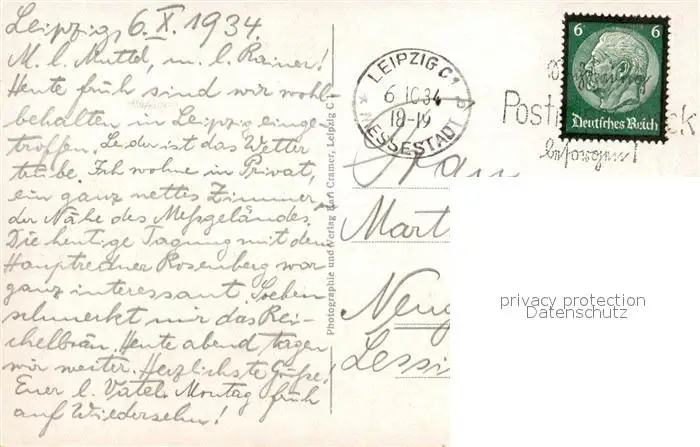 Leipzig, 6.X.1934.
M. l. Muttel, m. l. Rainer!
Heute früh sind wir wohl-
behalten in Leipzig einge-
troffen. Leider ist das Wetter
trübe. Ich wohne in Privat,
ein ganz nettes Zimmer
der Nähe des Meßgeländes.
Die heutige Tagung mit dem
Hauptredner Rosenberg war
ganz interessant. Soeben
schmeckt mir das Rei-
chelbräu. Heute abend tagen
wir weiter. Herzlichste Grüße!
Euer l. Vatel. Montag früh
auf Wiedersehn!
Photographie und Verlag Karl Cramer, Leipzig C
LEIPZIG C1
6.10.34
18-19
* MESSESTADT
Post
befragen!
6 6
Deutsches Reich
Frau
Mart
Neug
Lessi
privacy protection
Datenschutz